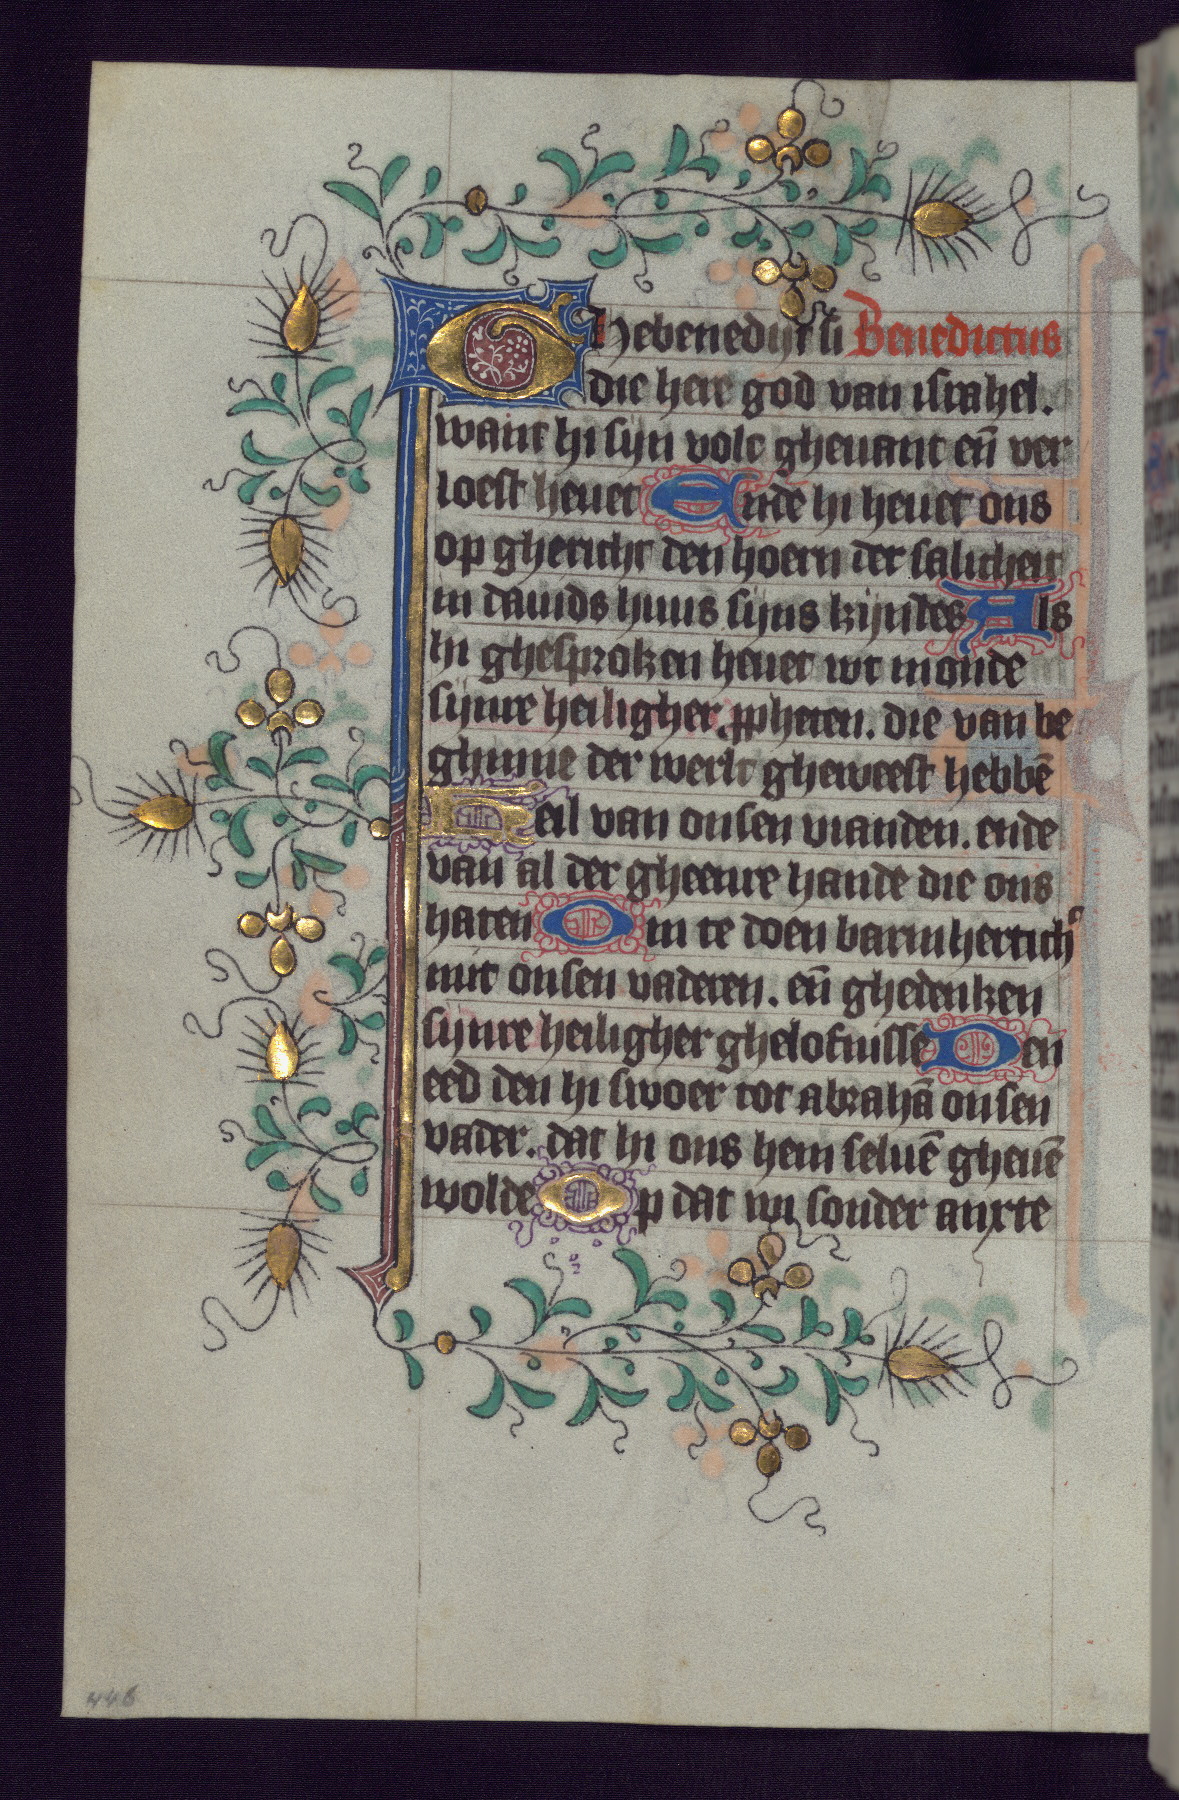 Ghebenedijt si Benedictus
die here god van israhel.
want hi sijn volc gheuant eñ ver
loest heuet Ende hi heuet ons
op ghericht den hoern der salicheit
in dauids huus sijns kijndes Als
hi ghesproken heuet wt monde
sijnre heiligher ꝓpheten. die van be
ghinne der werlt gheweest hebbē
Heil van onsen vianden. ende
van al der gheenre hande die ons
haten Om te doen barmherticħ
mit onsen vaderen. eñ ghedenken
sijnre heiligher ghelofnisse Den
eed den hi swoer tot abrahā onsen
vader. dat hi ons hem seluē gheuē
wolde Op dat wi sonder anxte
446